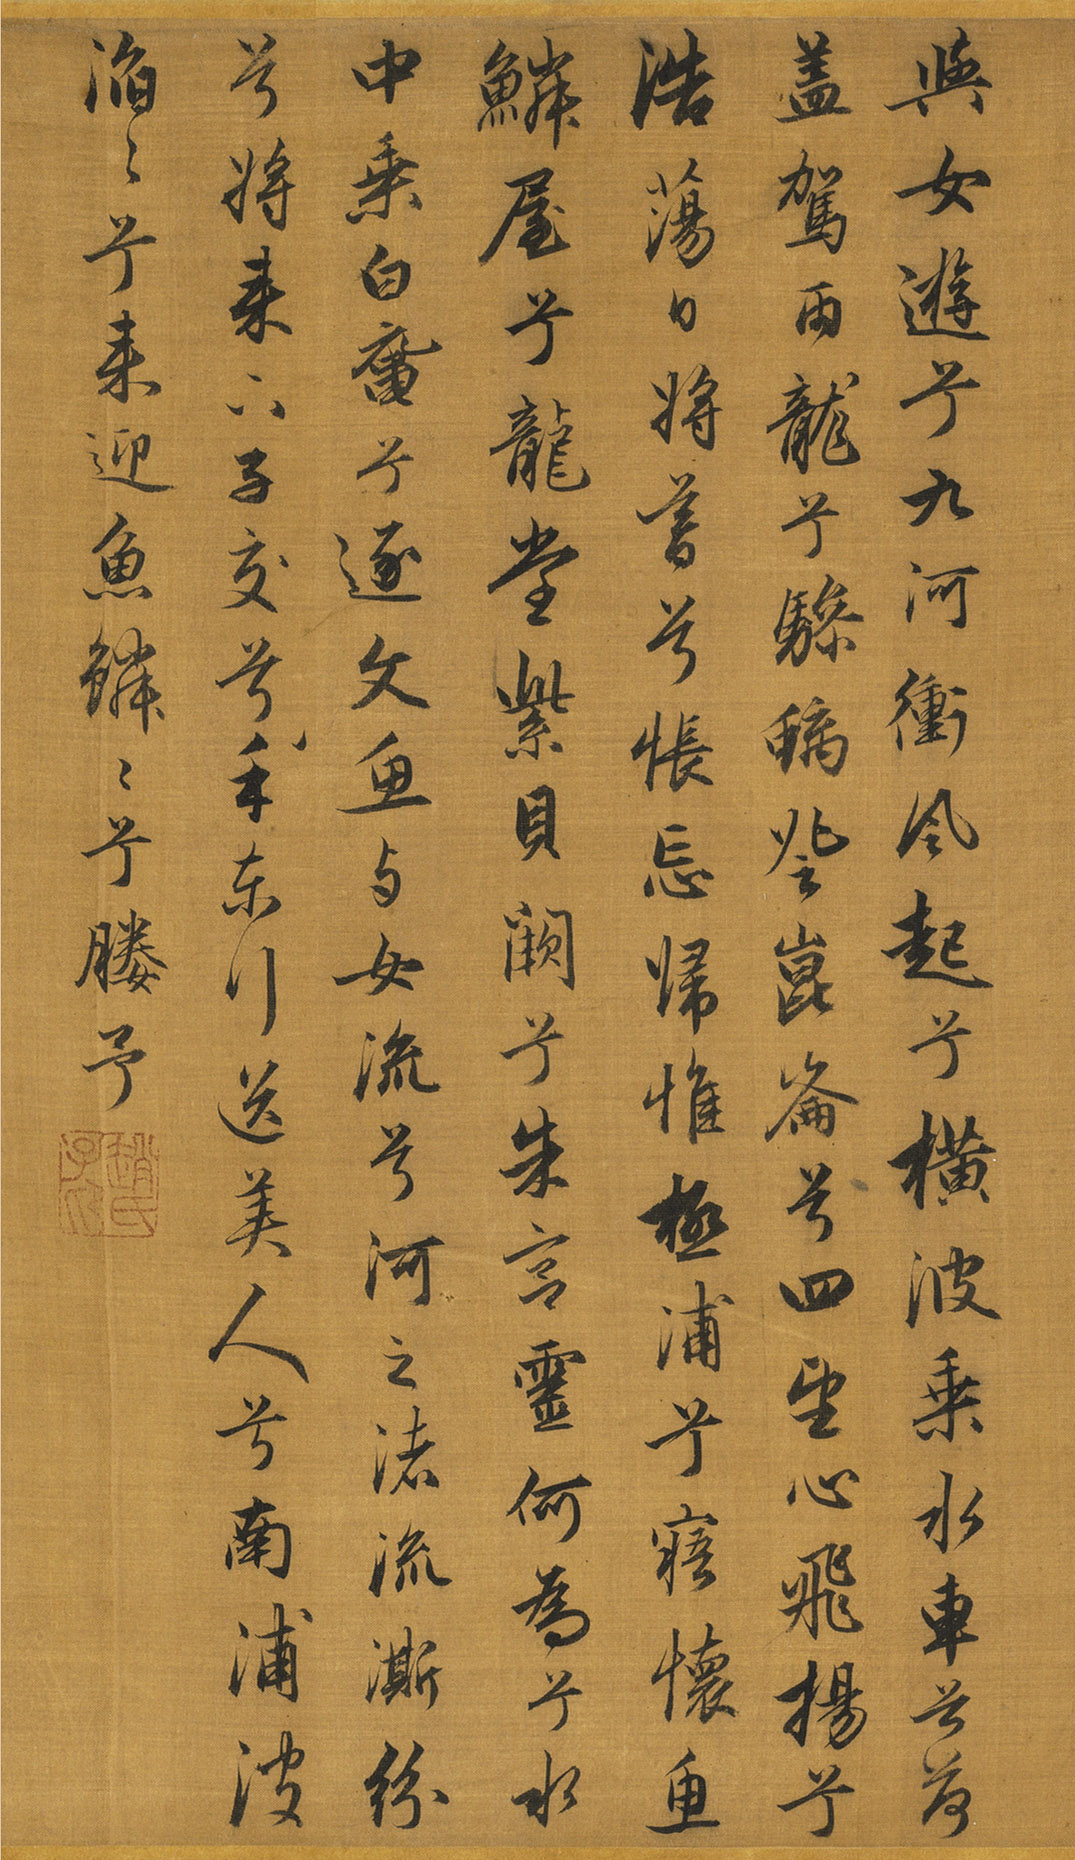 與女遊兮九河衝風起兮橫波乘水車兮荷
蓋駕兩龍兮驂螭登崑崙兮四望心飛揚兮
浩蕩日將暮兮悵忘歸惟極浦兮寤懷魚
鱗屋兮龍堂紫貝闕兮朱宮靈何為兮水
中乘白黿兮逐文魚与女流兮河之渚流澌紛
兮將来下子交兮手東行送美人兮南浦波
滔〻兮来迎魚鱗〻兮媵予
趙氏子昂